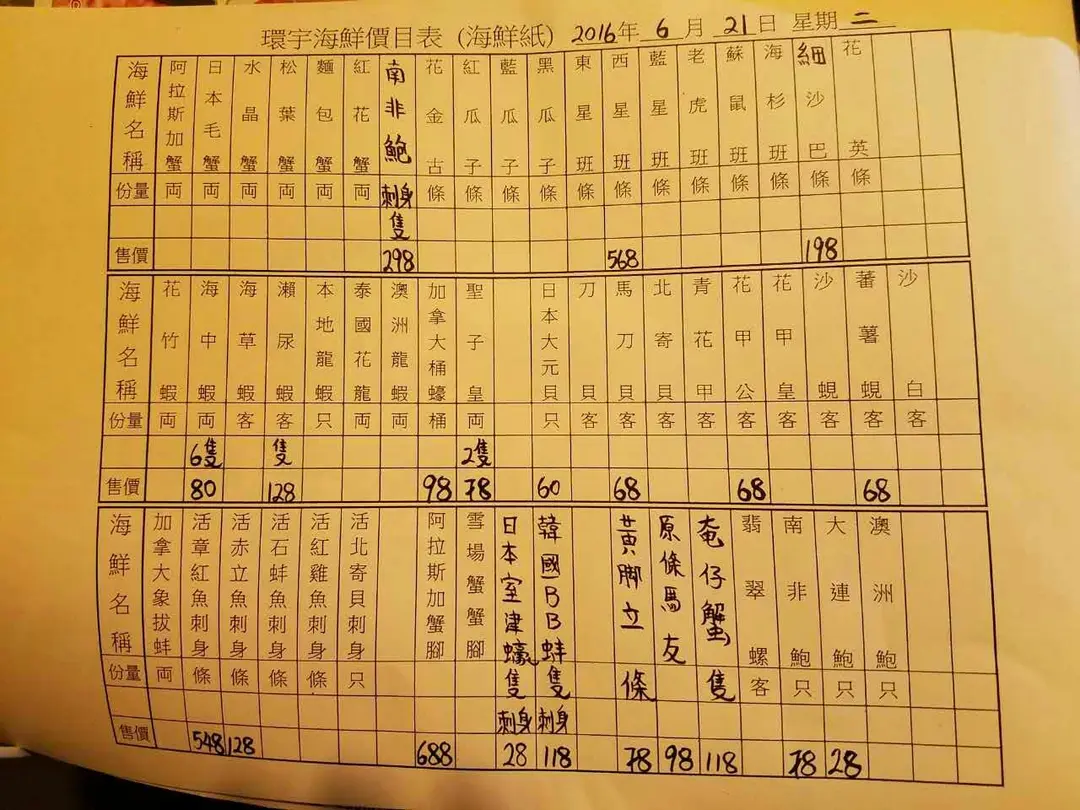 環宇海鮮價目表 (海鮮紙) 2016年 6 月 21 日 星期 二
海鮮名稱 阿拉斯加蟹 日本毛蟹 水晶蟹 松葉蟹 麵包蟹 紅花蟹 南非鮑 花金古 紅瓜子 藍瓜子 黑瓜子 東星班 西星班 藍星班 老虎班 蘇鼠班 海杉班 細沙巴 花英
份量 両 両 両 両 両 両 刺身 條 條 條 條 條 條 條 條 條 條 條 條
隻
售價 298 568 198
海鮮名稱 花竹蝦 海中蝦 海草蝦 瀨尿蝦 本地龍蝦 泰國花龍 澳洲龍蝦 加拿大桶蠔 聖子皇 日本大元貝 刀貝 馬刀貝 北寄貝 青花甲 花甲公 花甲皇 沙蜆 蕃薯蜆 沙白
份量 両 両 客 客 只 両 両 桶 両 只 客 客 客 客 客 客 客 客 客
6隻 隻 2隻
售價 80 128 98 78 60 68 68 68
海鮮名稱 加拿大象拔蚌 活章紅魚刺身 活赤立魚刺身 活石蚌魚刺身 活紅雞魚刺身 活北寄貝刺身 阿拉斯加蟹腳 雪場蟹蟹腳 日本室津蠔 韓國BB蚌 黃脚立 原條馬友 奄仔蟹 翡翠螺 南非鮑 大連鮑 澳洲鮑
份量 両 條 條 條 條 只 隻 隻 條 隻 客 只 只 只
刺身 刺身
售價 548 128 688 28 118 78 98 118 78 28